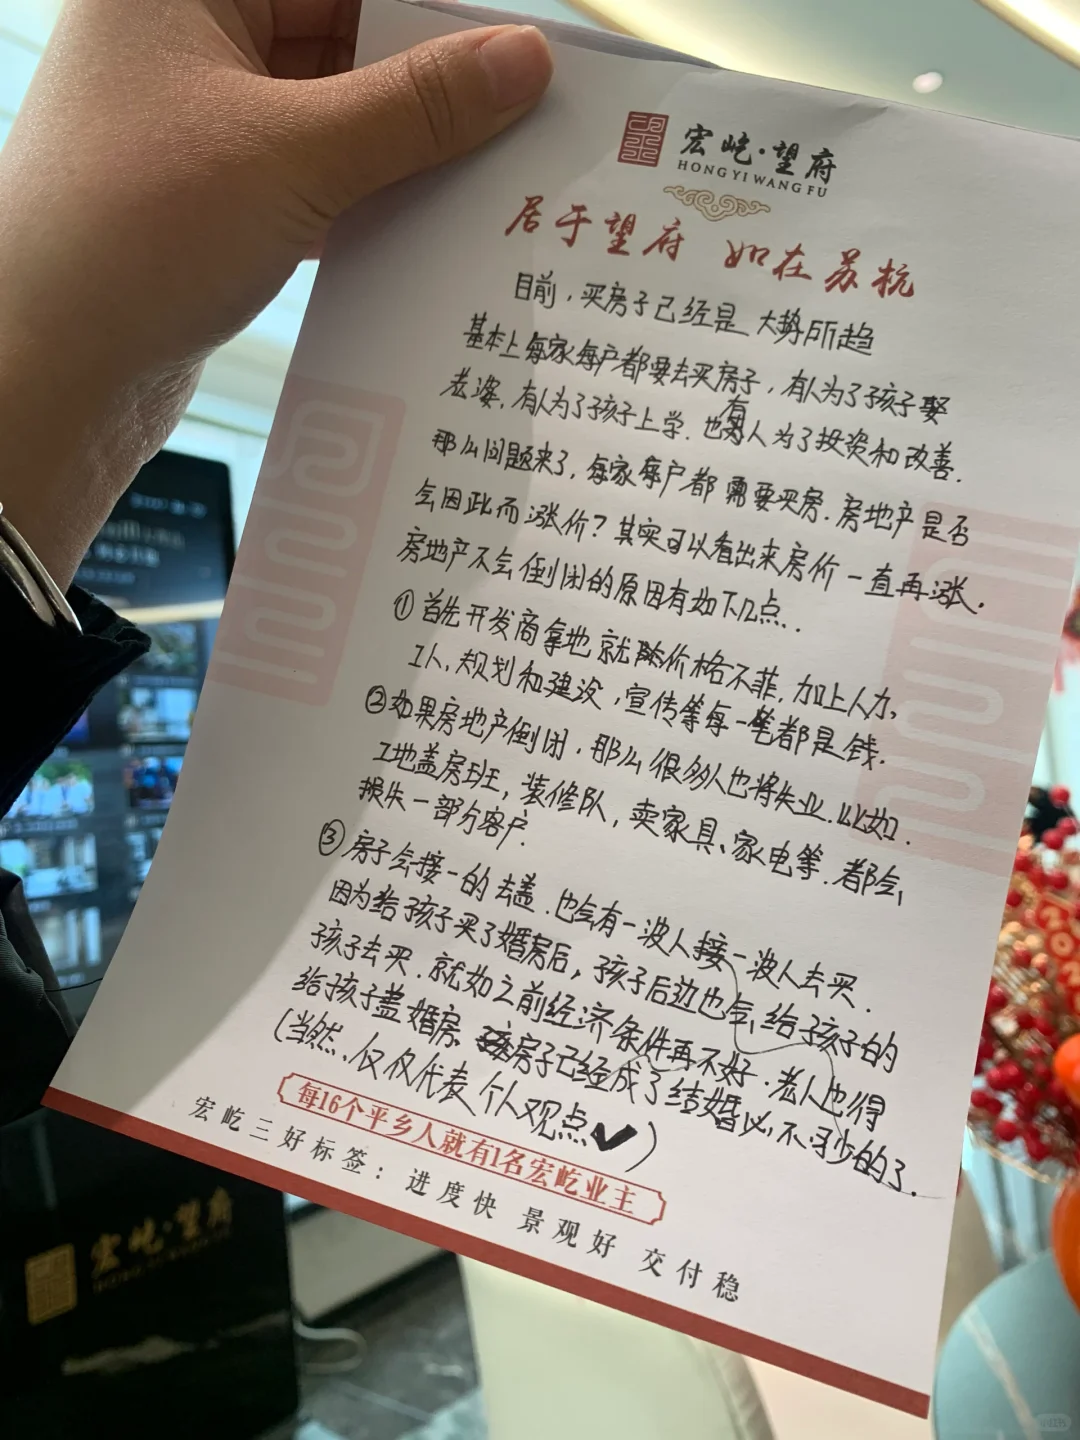 宏屹·望府
HONG YI WANG FU
居于望府 如在苏杭
目前，买房子已经是 大势所趋
基本上每家每户都要去买房子，有人为了孩子娶
老婆，有人为了孩子上学.也有人为了投资和改善.
那么问题来了，每家每户都 需要买房.房地产是否
会因此而涨价？其实可以看出来房价一直再涨.
房地产不会倒闭的原因有如下几点..
①首先开发商拿地就价格不菲，加上人力、
工人，规划和建设，宣传等每一笔都是钱.
②如果房地产倒闭，那么很多人也将失业.比如.
工地盖房班，装修队，卖家具、家电等.都会
损失一部分客户.
③房子会接一的去盖.也会有一波人接一波人去买.
因为给孩子买了婚房后，孩子后边也会给孩子的
孩子去买.就如之前经济条件再不好.老人也得
给孩子盖婚房 房子已经成了结婚必不可少的了.
(当然，仅仅代表个人观点✓)
每16个平乡人就有1名宏屹业主
宏屹三好标签：进度快 景观好 交付稳
宏屹·望府